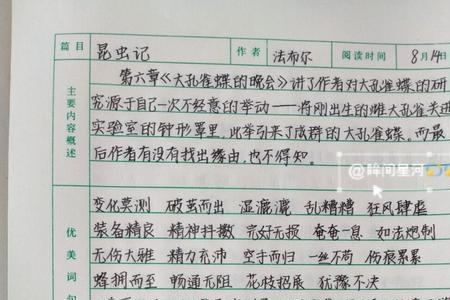 篇目 昆虫记 作者 法布尔 阅读时间 8月14日
主要内容概述
第六章《大孔雀蝶的晚会》讲了作者对大孔雀蝶的研
究源于自己一次不经意的举动——将刚出生的雌大孔雀关进
实验室的钟形罩里,此举引来了成群的大孔雀蝶。而最
后作者有没有找出缘由,也不得知。
@眸间星河
优美词句
变化莫测 破茧而出 湿漉漉 乱糟糟 狂风肆虐
装备精良 精神抖擞 完好无损 奄奄一息 如法炮制
无伤大雅 精力充沛 空手而归 一丝不苟 伤痕累累
蜂拥而至 畅通无阻 花枝招展 犹豫不决